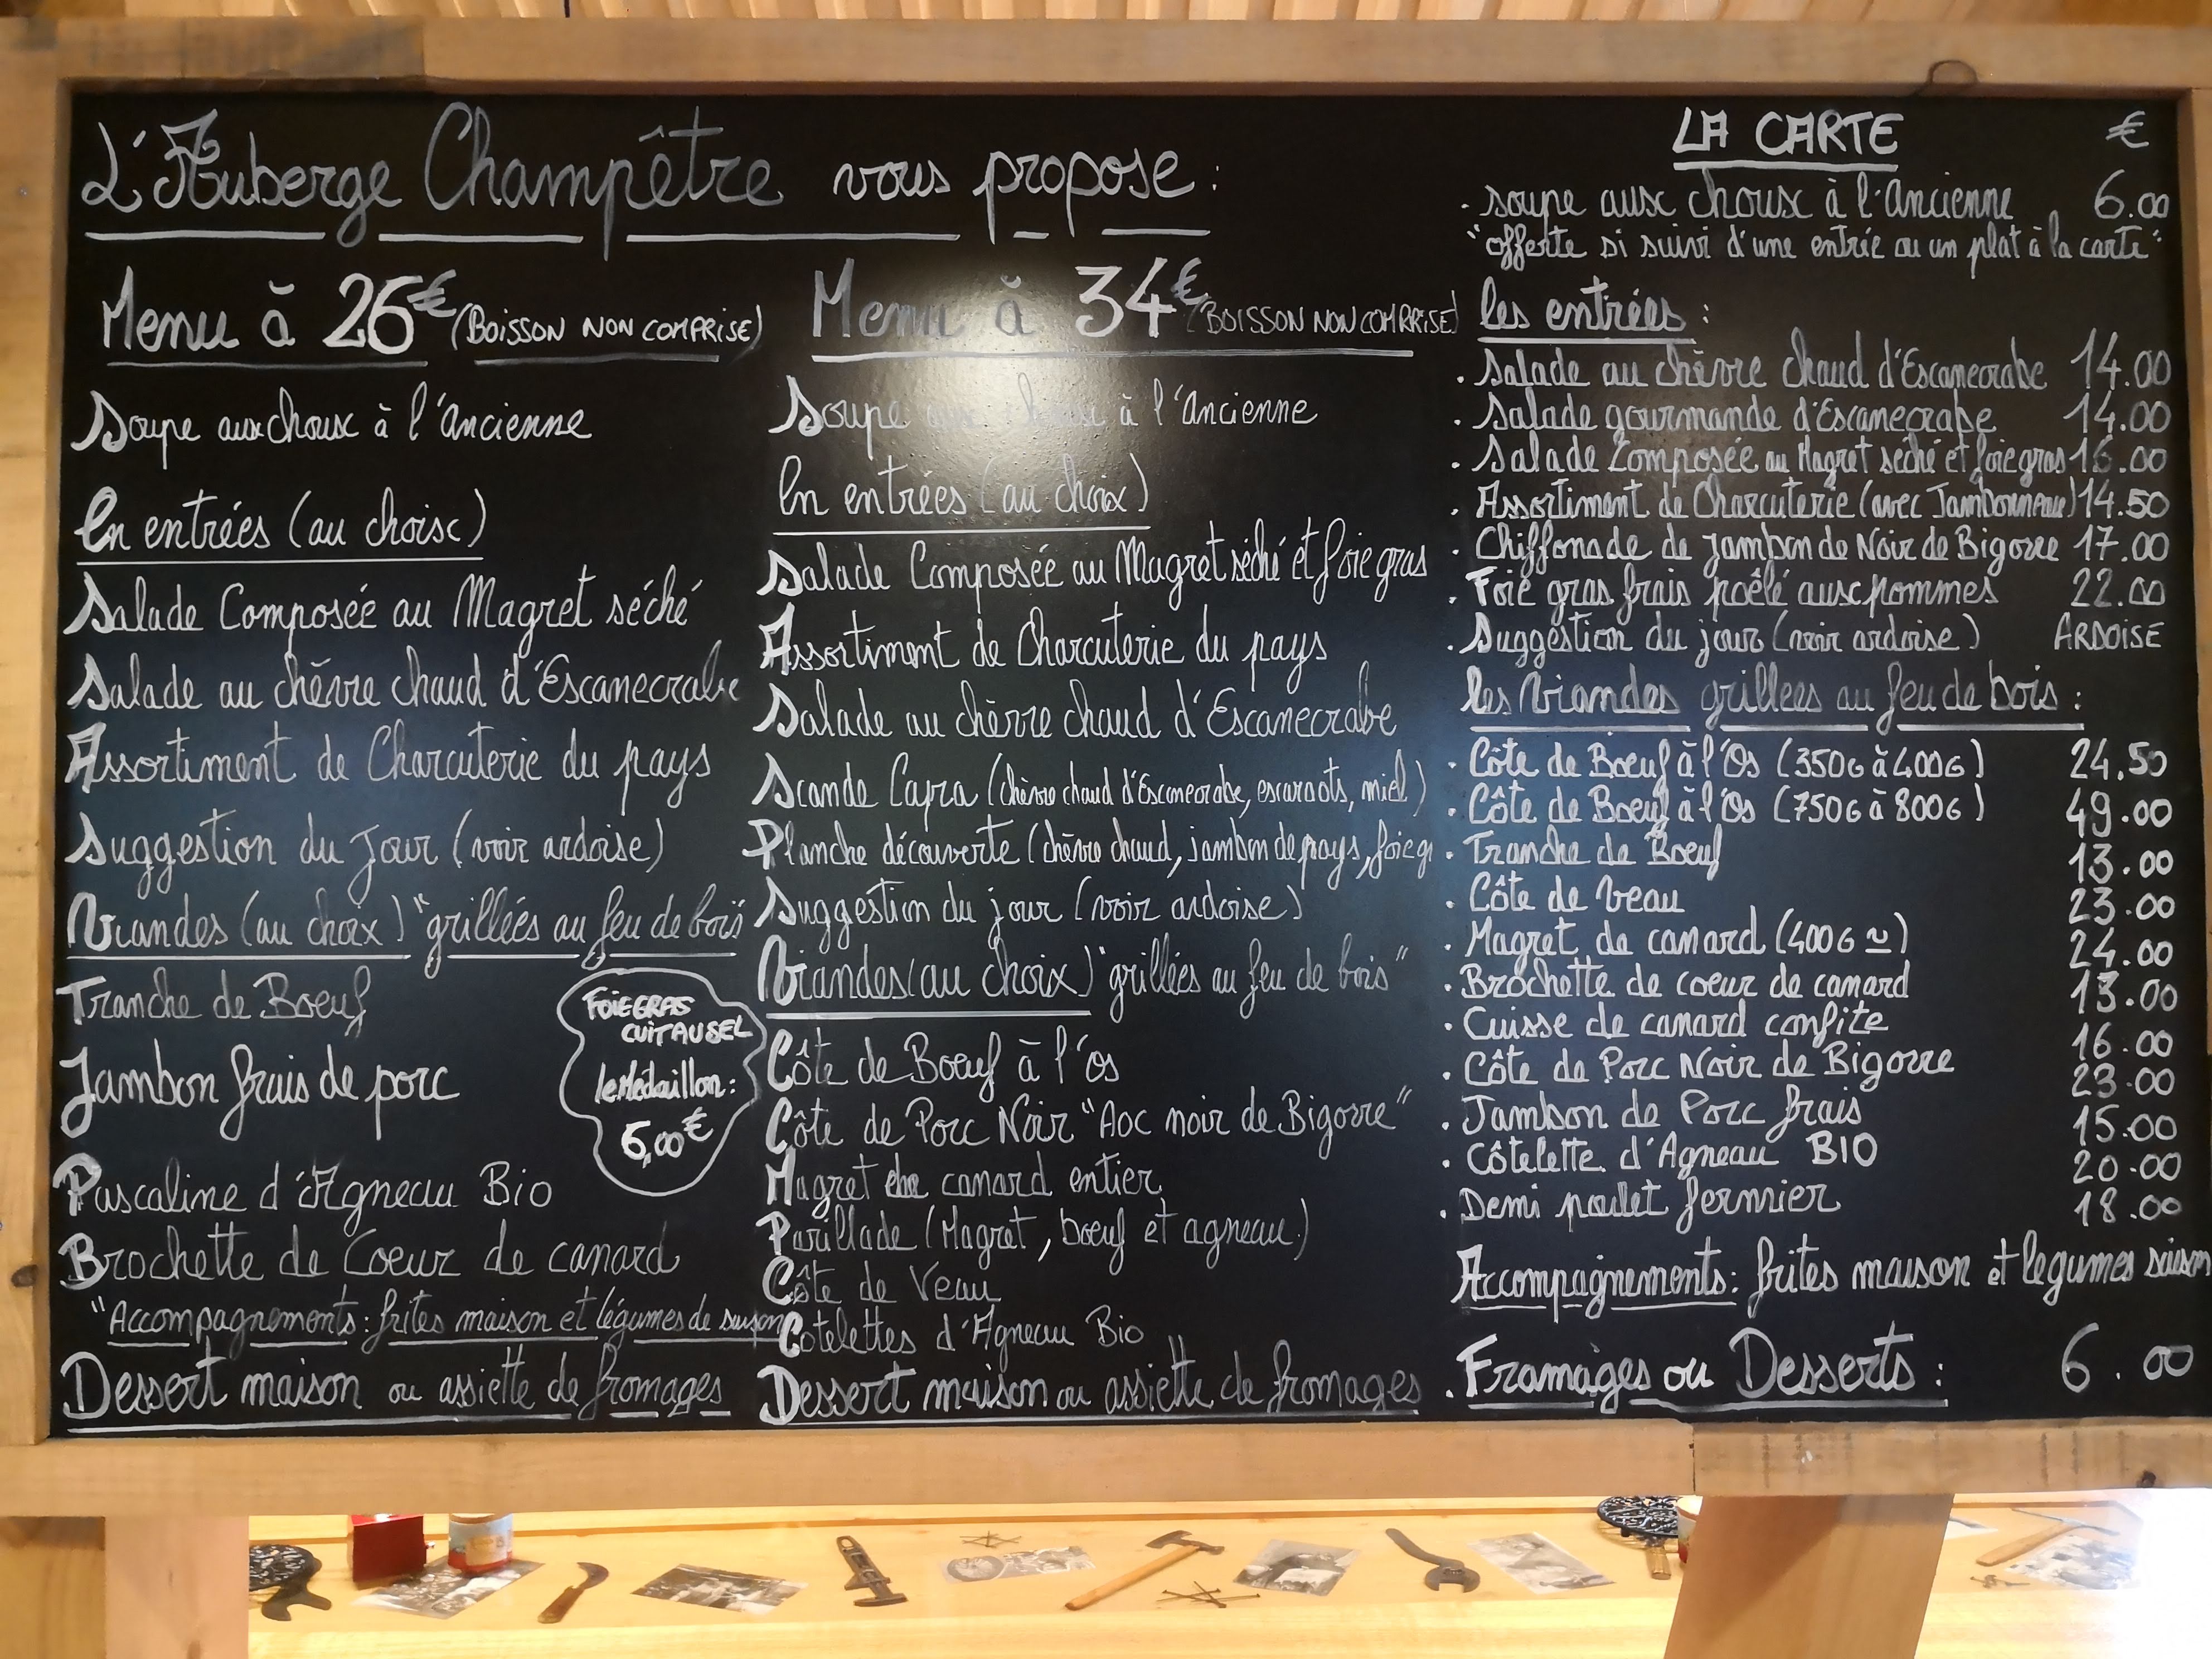 L'Auberge Champêtre vous propose :
Menu à 26€ (BOISSON NON COMPRISE)
Soupe aux choux à l'Ancienne
En entrées (au choix)
Salade Composée au Magret séché
Salade au chèvre chaud d'Escanecrabe
Assortiment de Charcuterie du pays
Suggestion du jour (voir ardoise)
Viandes (au choix) "grillées au feu de bois"
Tranche de Boeuf
Jambon frais de porc
Pascaline d'Agneau Bio
Brochette de Coeur de canard
"Accompagnements : frites maison et légumes de saison
Dessert maison ou assiette de fromages
FOIE GRAS
CUIT AU SEL
le Médaillon :
6,00€
Menu à 34€ (BOISSON NON COMPRISE)
Soupe aux choux à l'Ancienne
En entrées (au choix)
Salade Composée au Magret séché et foie gras
Assortiment de Charcuterie du pays
Salade au chèvre chaud d'Escanecrabe
Scande Capra (chèvre chaud d'Escanecrabe, escargots, miel)
Planche découverte (chèvre chaud, jambon de pays, foie g
Suggestion du jour (voir ardoise)
Viandes (au choix) "grillées au feu de bois"
Côte de Boeuf à l'os
Côte de Porc Noir "Aoc noir de Bigorre"
Magret de canard entier
Parillade (Magret, boeuf et agneau)
Côte de Veau
Cotelettes d'Agneau Bio
Dessert maison ou assiette de fromages
LA CARTE €
. soupe aux choux à l'Ancienne 6.00
"offerte si suivi d'une entrée ou un plat à la carte"
les entrées :
. Salade au chèvre chaud d'Escanecrabe 14.00
. Salade gourmande d'Escanecrabe 14.00
. Salade Composée au Magret séché et foie gras 16.00
. Assortiment de Charcuterie (avec Jambonneau) 14.50
. Chiffonade de jambon de Noir de Bigorre 17.00
. Foie gras frais poêlé aux pommes 22.00
. Suggestion du jour (voir ardoise) ARDOISE
les Viandes grillees au feu de bois :
. Côte de Boeuf à l'Os (350G à 400G) 24.50
. Côte de Boeuf à l'Os (750G à 800G) 49.00
. Tranche de Boeuf 13.00
. Côte de Veau 23.00
. Magret de canard (400G ~) 24.00
. Brochette de coeur de canard 13.00
. Cuisse de canard confite 16.00
. Côte de Porc Noir de Bigorre 23.00
. Jambon de Porc frais 15.00
. Côtelette d'Agneau BIO 20.00
. Demi poulet fermier 18.00
Accompagnements : frites maison et legumes saison
. Fromages ou Desserts : 6.00